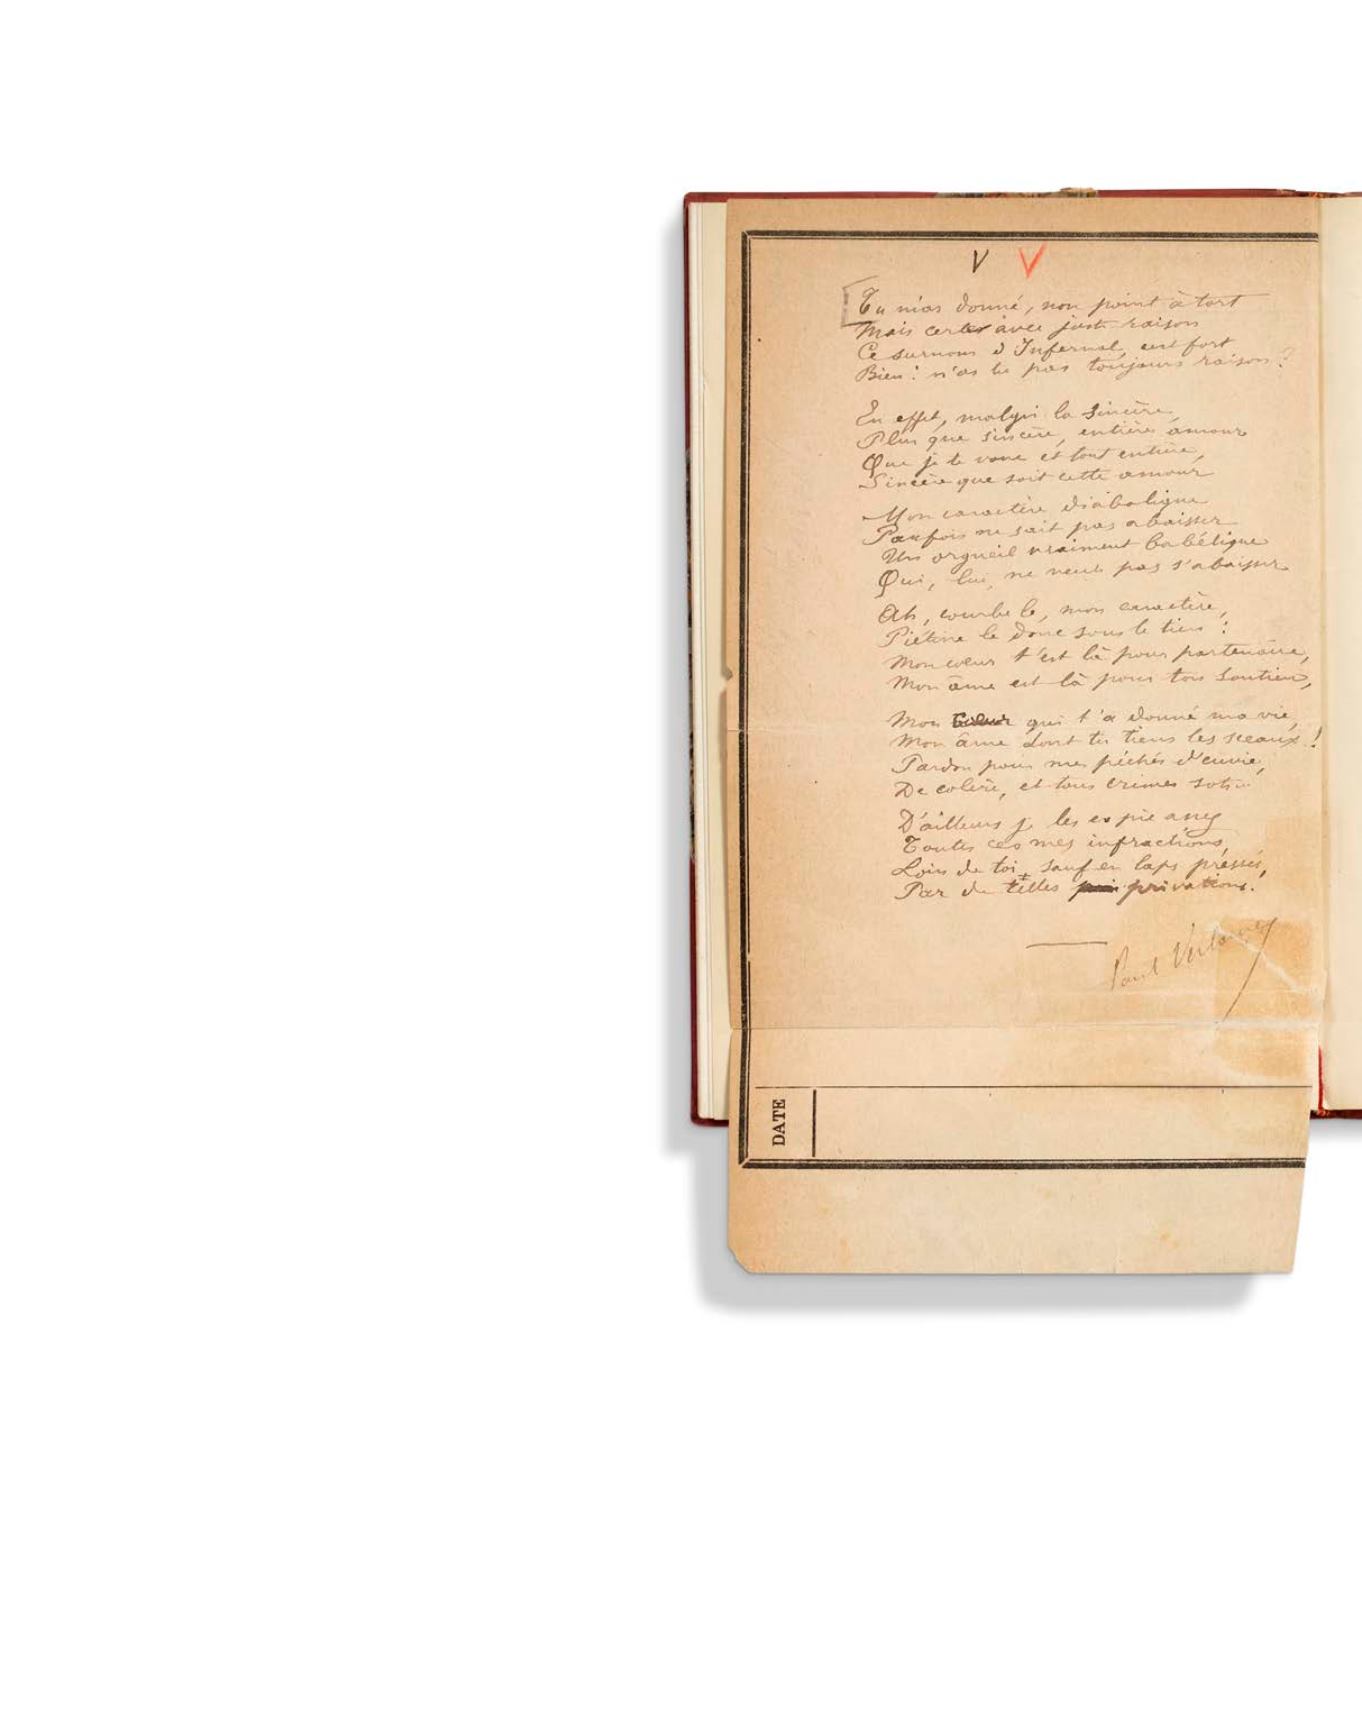 V V
Tu m'as donné, non point à tort
Mais certes avec juste raison
Ce surnom d'Infernal, est fort
Bien : n'as tu pas toujours raison ?
En effet, malgré la sincère,
Plus que sincère, entière amour
Que je te voue et tout entière,
Sincère que soit cette amour
Mon caractère diabolique
Parfois ne sait pas abaisser
Un orgueil vraiment babélique
Qui, lui, ne veut pas s'abaisser
Ah, courbe le, mon caractère,
Piétine le donc sous le tien :
Mon coeur t'est là pour partenaire,
Mon âme est là pour ton soutien,
Mon coeur qui t'a donné ma vie,
Mon âme dont tu tiens les sceaux !
Pardon pour mes péchés d'envie,
De colère, et tous crimes sots
D'ailleurs je les expie assez
Toutes ces mes infractions,
Loin de toi, sauf en laps pressés,
Par de telles privations.
Paul Verlaine
DATE